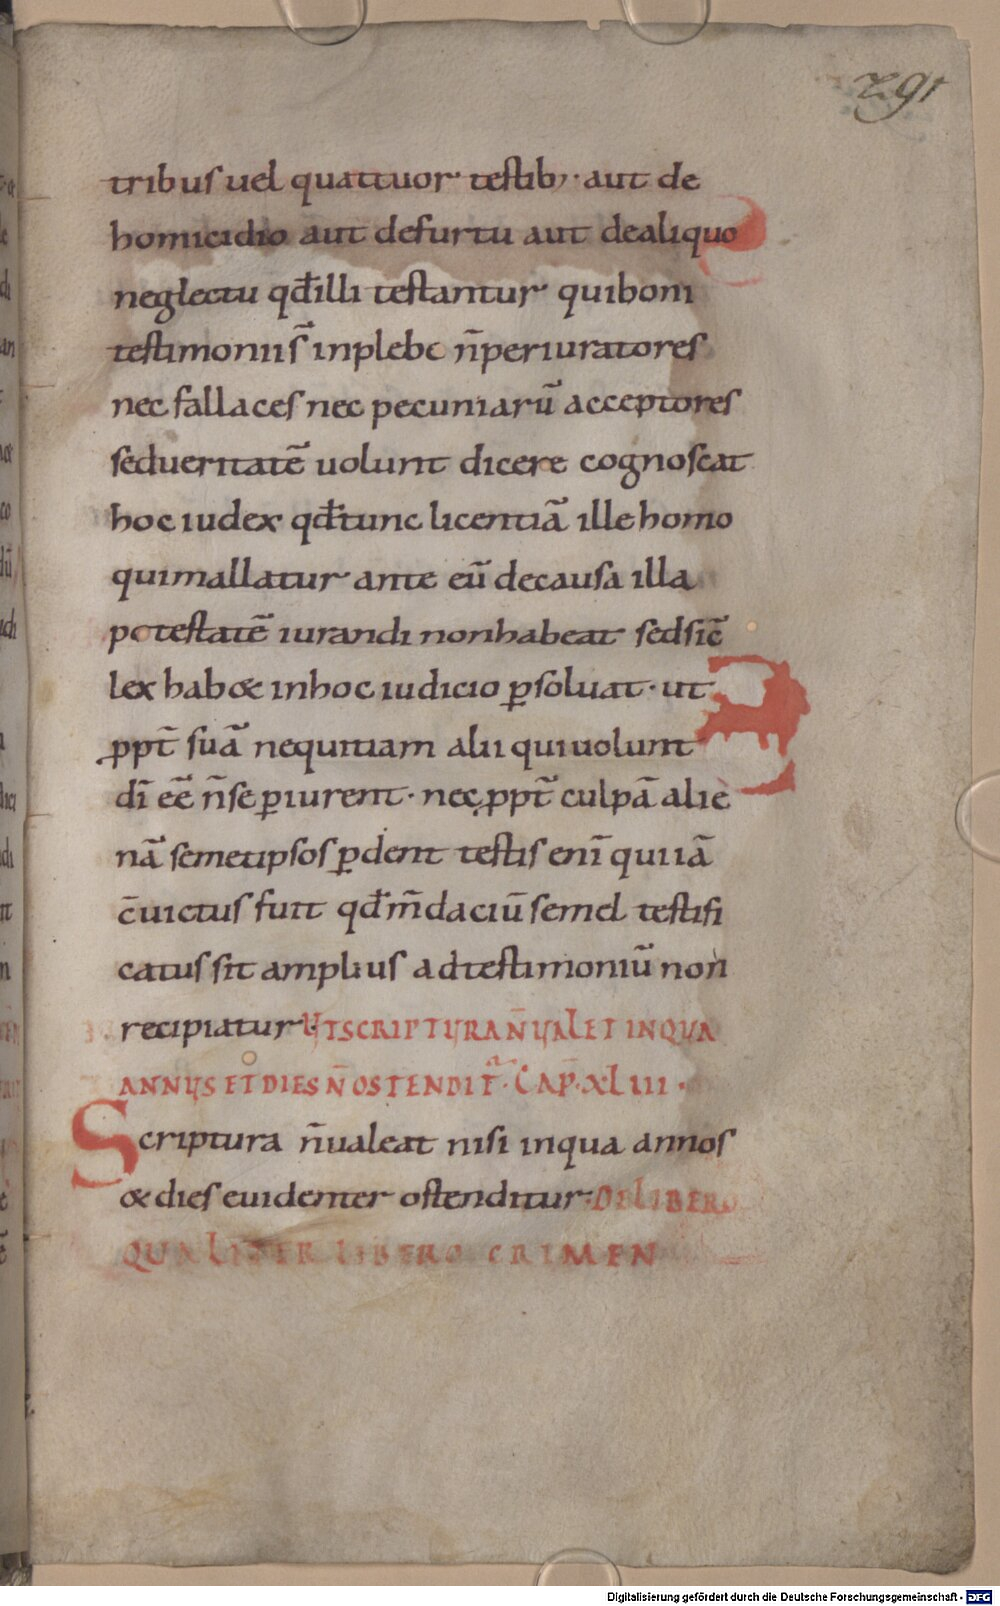 291
tribus uel quattuor testib; · aut de
homicidio aut defurtu aut dealiquo
neglectu qđilli testantur quiboni
testimonii s̄ inplebe n̄periuratores
nec fallaces nec pecuniarū acceptores
seduerитatē uolunt dicere cognoscat
hoc iudex qđtunc licentiā ille homo
quimallatur ante eū decausa illa
potestatē iurandi nonhabeat sedsic̄
lex hab& inhoc iudicio ꝑsoluat · ut
ꝓpt̄ suā nequitiam alii quiuolunt
dī eē n̄se ꝑiurent · nec ꝓpt̄ culpā alie
nā semetipsos ꝑdent testis enī qui iā
c̄uictus fuit qđm̄daciū semel testifi
catus sit amplius adtestimoniū non
recipiatur · UTSCRIPTURAN̄UALET INQUA
ANNUS ET DIES N̄OSTENDIT̄ · CAP · XLIII ·
Scriptura n̄ualeat nisi inqua annos
& dies euidenter ostenditur · DELIBERO
QUALITER LIBERO CRIMEN
Digitalisierung gefördert durch die Deutsche Forschungsgemeinschaft - DFG